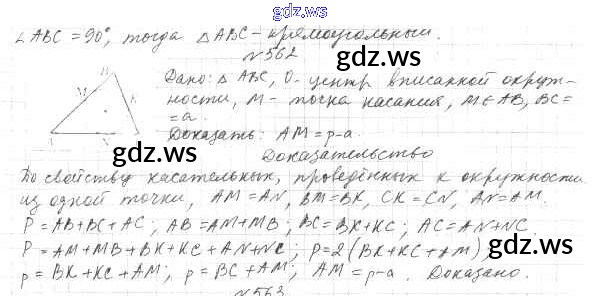 gdz.ws
∠ABC = 90°, тогда △ABC – прямоугольный.
№562
Дано: △ABC, O – центр вписанной окруж-
ности, M – точка касания, M∈AB, BC =
= a.
Доказать: AM = p-a.
gdz.ws
Доказательство
По свойству касательных, проведённых к окружности
из одной точки, AM = AN, BM = BK, CK = CN, AN = AM.
P = AB + BC + AC; AB = AM + MB; BC = BK + KC; AC = AN + NC.
P = AM + MB + BK + KC + AN + NC; P = 2(BK + KC + AM);
p = BK + KC + AM; p = BC + AM; AM = p-a. Доказано.
gdz.ws
№563
gdz.ws